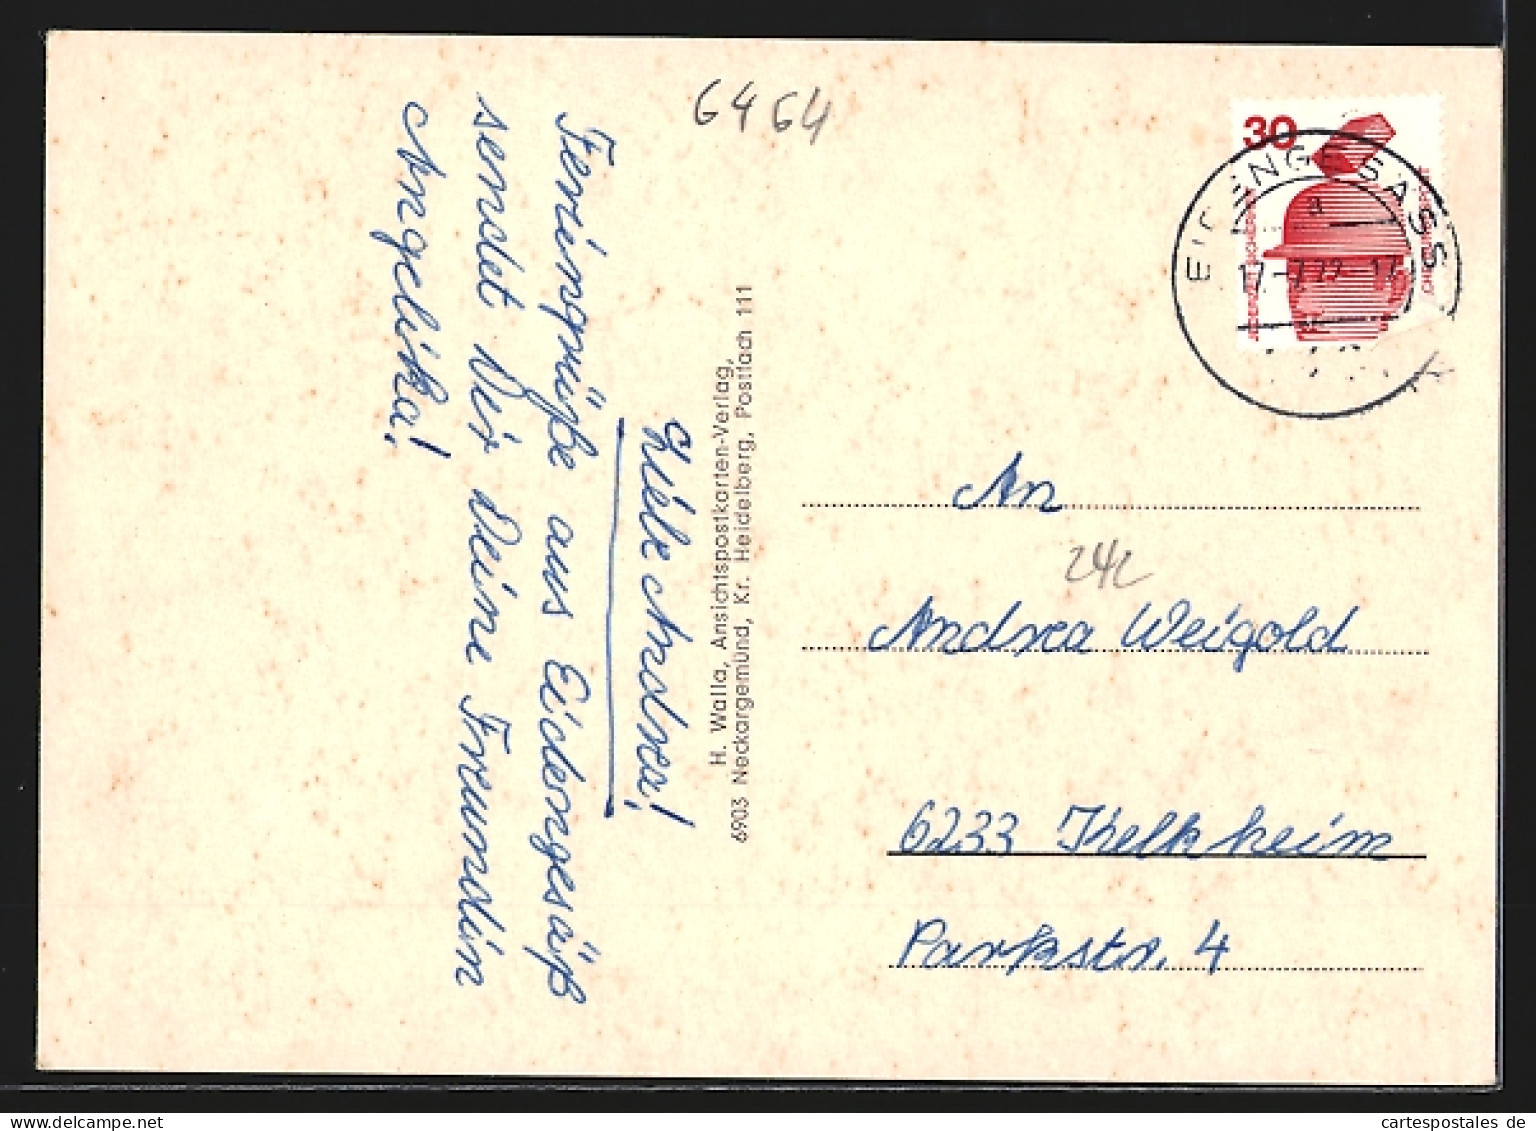 6464
Liebe Andrea!
Feriengrüße aus Eidengesäß
sendet Dir Deine Freundin
Angelika!
H. Walla, Ansichtspostkarten-Verlag,
6903 Neckargemünd, Kr. Heidelberg, Postfach 111
30
EIDENGESÄSS
a
17.-7.72. 17
An
242
Andrea Weigold
6233 Kelkheim
Parkstr. 4
cartespostales de